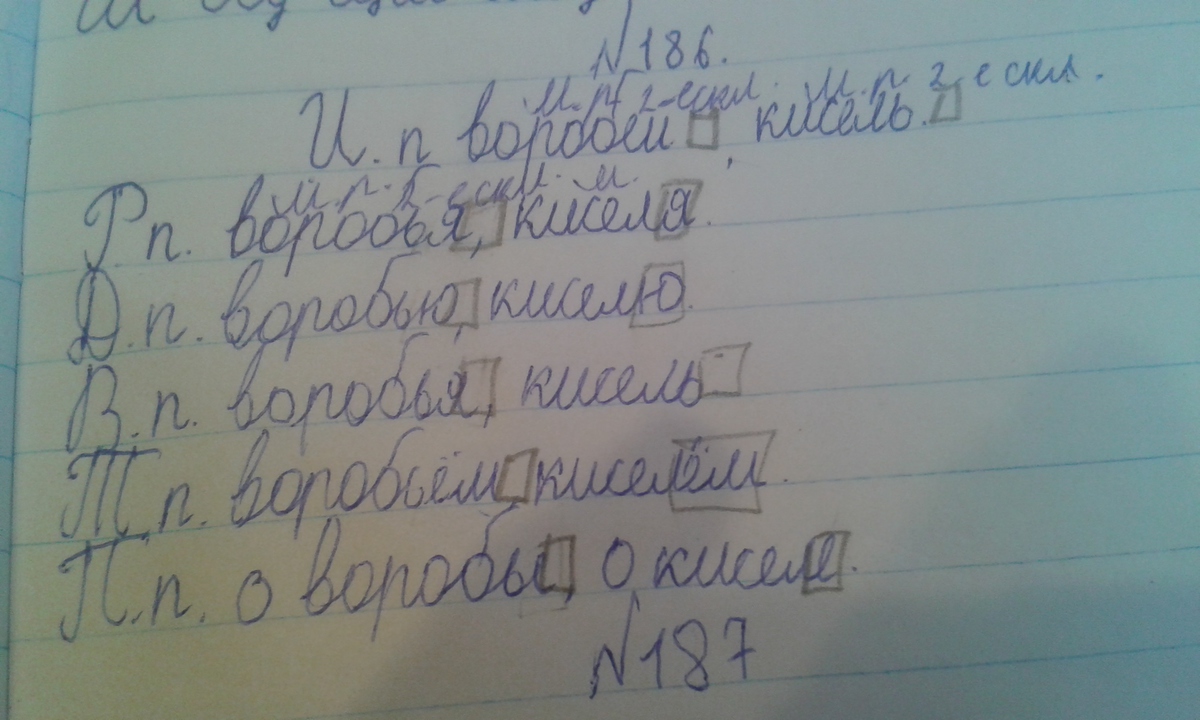 №186.
м. р. 2-е скл. м. р. 2 е скл.
И. п воробей, кисель.
м. р. 2-е скл. м.
Р п. воробья, киселя.
Д. п. воробью, киселю.
В. п. воробья, кисель
Т. п. воробьём киселём.
П. п. о воробье, о киселе.
№187